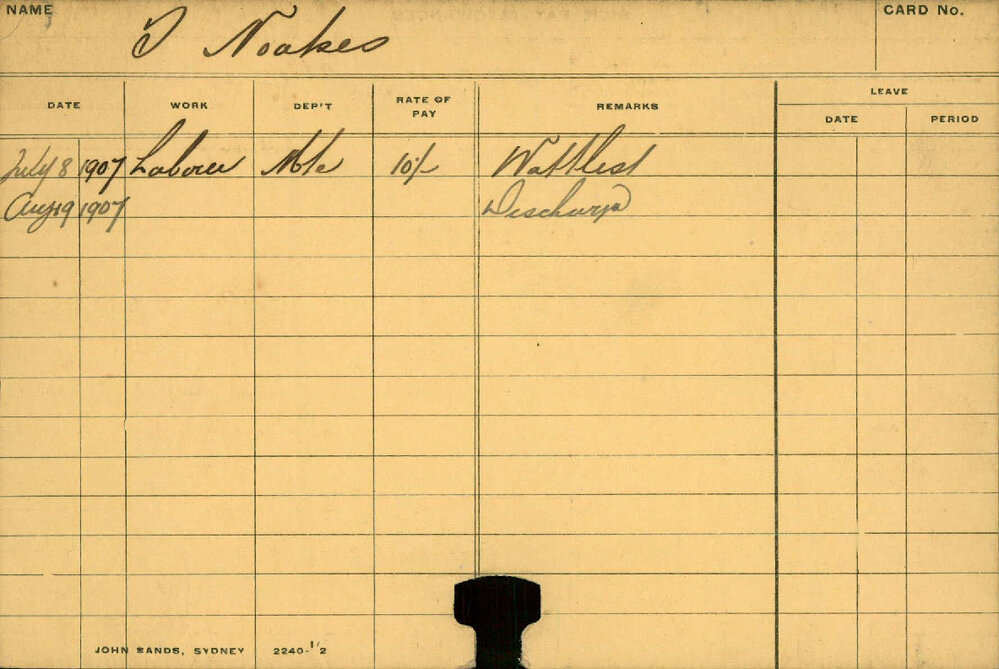 NAME
CARD No.
J Noakes
DATE WORK DEP'T RATE OF PAY REMARKS LEAVE
DATE PERIOD
July 8 1907 Laborer 10/-
Aug 19 1907
JOHN SANDS, SYDNEY 2240-1/2